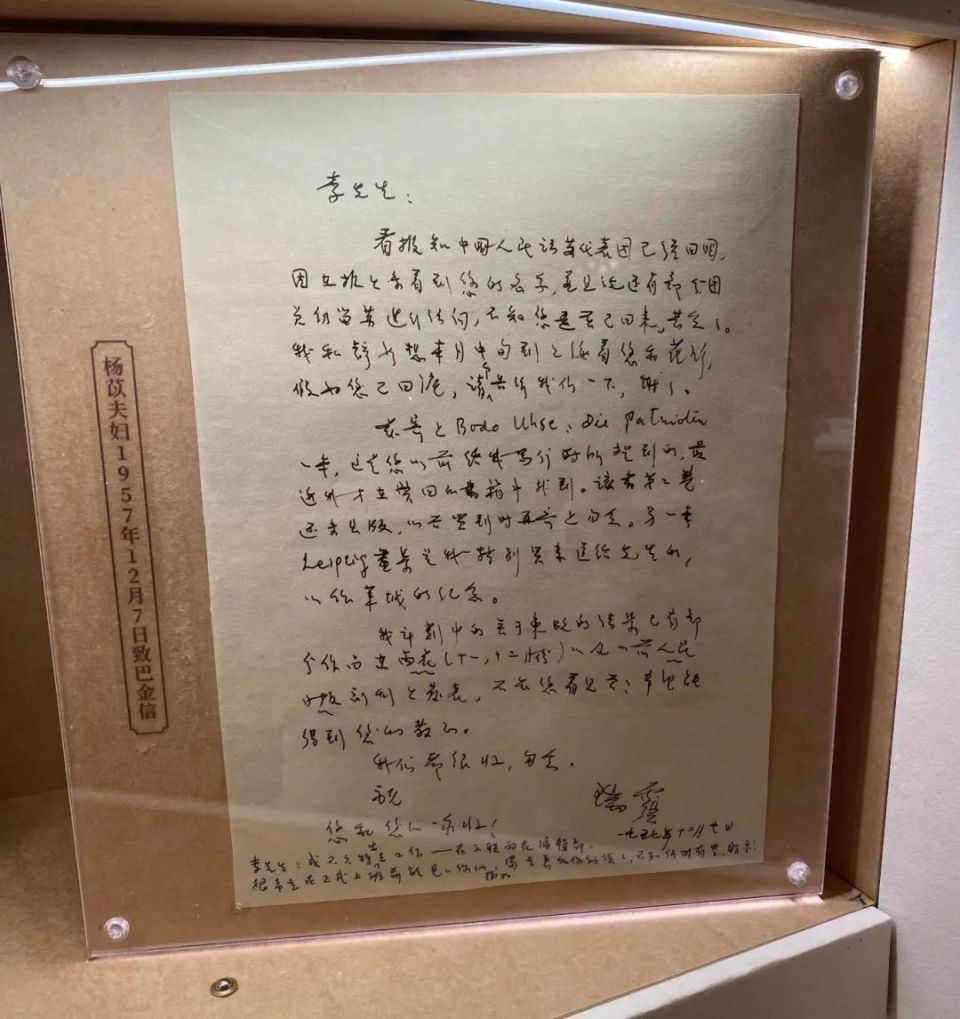 杨苡夫妇1957年12月7日致巴金信
李先生：
看报知中国人民访苏代表团已经回国，
因在报上未看到您的名字，并且说还有部分团
员仍留苏进行访问，不知您是否已回来，甚念了。
我和静如想本月中旬到上海看您和
假如您已回沪，请告诉我们一下，谢了。
寄上Bodo Uhse：Die Patrioten
一本，这是您以前给我写信时所提到的，最
近我才在带回的书箱中找到。该书第二卷
还未出版，以后买到时再寄上勿念。另一本
Leipzig画集是我特别买来送给先生的，
以作莱城的纪念。
我计划中的关于东欧的诗集已有部
分作品在雨花（十一，十二月份）以及以前人民
日报副刊上发表，不知您看见否？希望能
得到您的教正。
我们都很好，勿念。
祝
您和您们一家好！
瑞蕻
一九五七年十二月七日
李先生：我不久